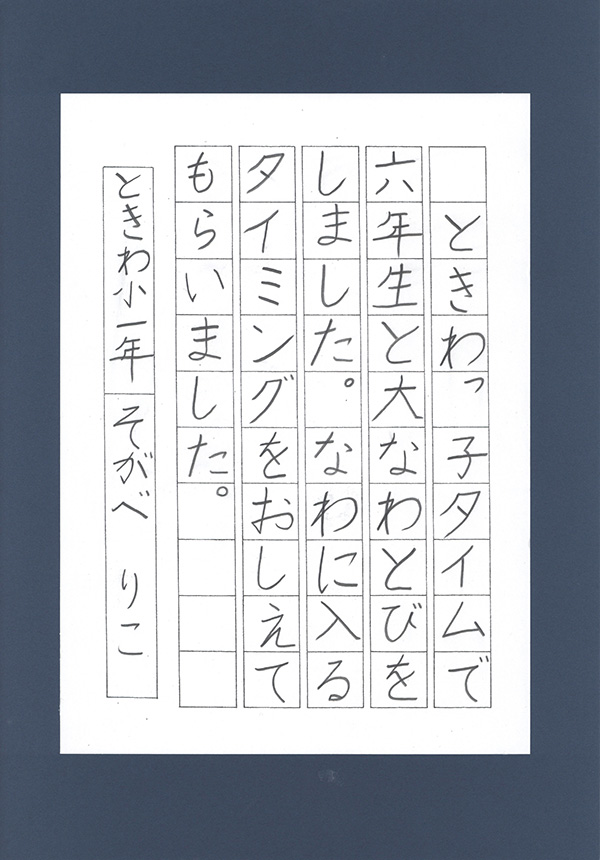 ときわっ子タイムで
六年生と大なわとびを
しました。なわに入る
タイミングをおしえて
もらいました。
ときわ小一年　そがべ　りこ